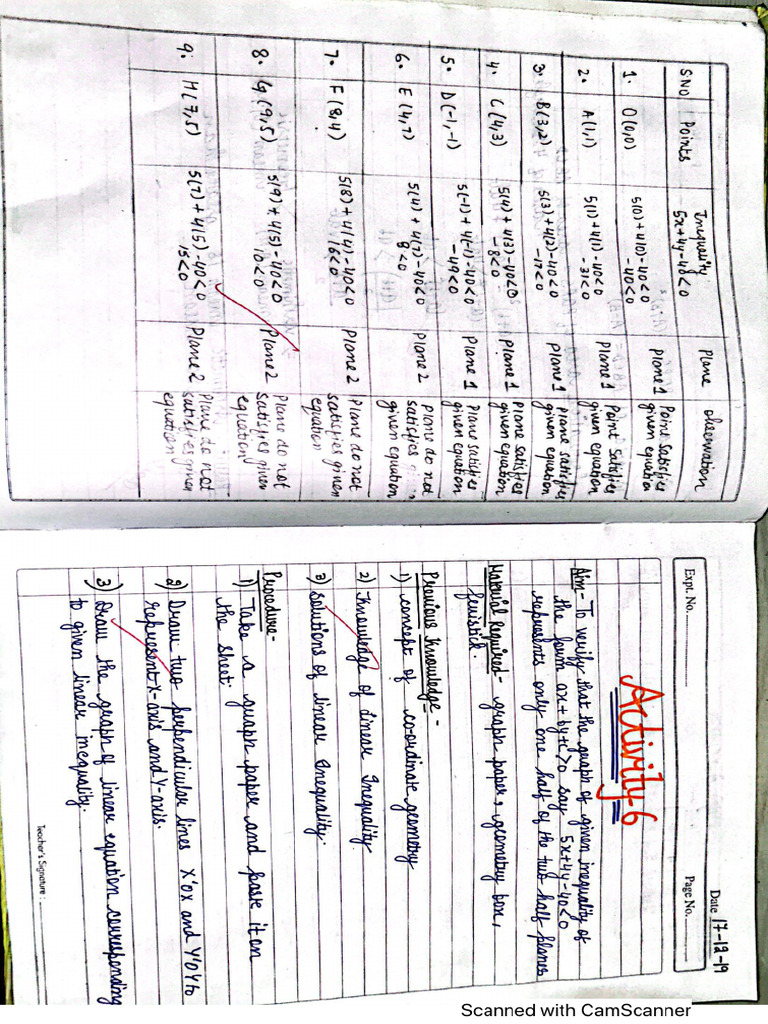 Expt. No.
Date 17-12-19
Page No.
Activity-6
Aim- To verify that the graph of given inequality of
the form ax+by+c>0 say 5x+4y-40<0
represents only one half of the two half planes
Material Required- graph paper, geometry box,
fevistick.
Previous Knowledge-
1) concept of co-ordinate geometry
2) Knowledge of linear Inequality
3) Solutions of linear Inequality.
Procedure-
1) Take a graph paper and paste it on
the sheet.
2) Draw two perpendicular lines X'OX and Y'OY to
represent X-axis and Y-axis.
3) Draw the graph of linear equation corresponding
to given linear inequality.
Teacher's Signature :
S.NO Points Inequality Plane observation
5x+4y-40<0
1. O(0,0) 5(0)+4(0)-40<0 Plane 1 Point satisfies
-40<0 given equation
2. A(1,1) 5(1)+4(1)-40<0 Plane 1 Point satisfies
-31<0 given equation
3. B(3,2) 5(3)+4(2)-40<0 Plane 1 Plane satisfies
-17<0 given equation
4. C(4,3) 5(4)+4(3)-40<0 Plane 1 Plane satisfies
-8<0 given equation
5. D(-1,-1) 5(-1)+4(-1)-40<0 Plane 1 Plane satisfies
-49<0 given equation
6. E(4,7) 5(4)+4(7)-40<0 Plane 2 Plane do not
8<0 satisfies given
equation
7. F(8,4) 5(8)+4(4)-40<0 Plane 2 Plane do not
16<0 satisfies given
equation
8. G(9,5) 5(9)+4(5)-40<0 Plane 2 Plane do not
10<0 satisfies given
equation
9. H(7,5) 5(7)+4(5)-40<0 Plane 2 Plane do not
15<0 satisfies given
equation
Scanned with CamScanner